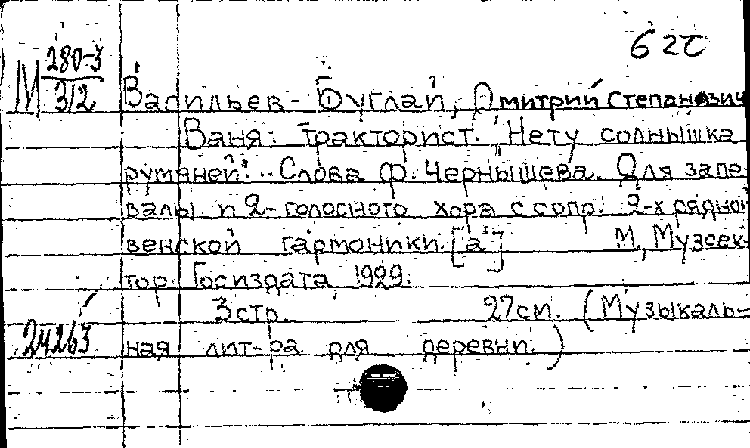 6 2с
М 280-3
3/2
Васильев-Буглай, Дмитрий Степанович
Ваня: тракторист. "Нету солнышка
румяней". Слова Ф. Чернышева. Для запе-
валы и 2-голосного хора с сопр. 2-х рядной
венской гармоники. [a] М., Музсек-
тор Госиздата, 1929.
3 стр. 27 см. (Музыкаль-
24263 ная лит-ра для деревни.)